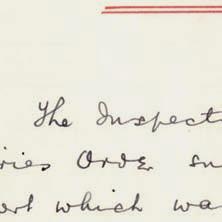 The Inspect
ries Order su
ort which wa